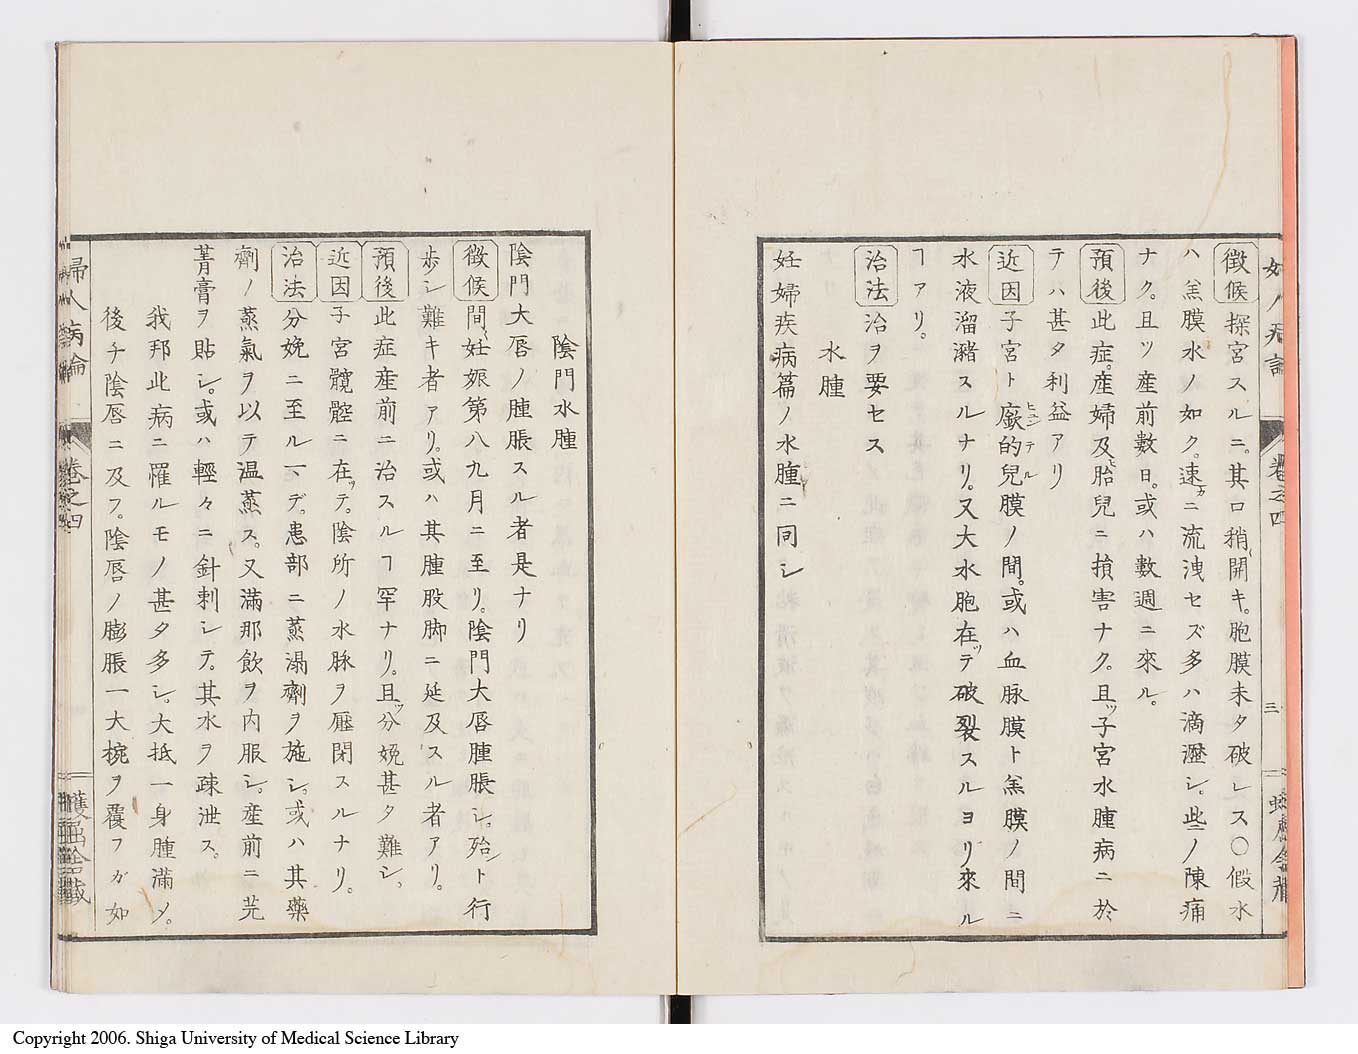 徴候探宮スルニ。其口稍開キ。胞膜未タ破レス〇假水
ハ羔膜水ノ如ク。速カニ流洩セズ多ハ滴瀝シ。些ノ陳痛
ナク。且ツ産前數日。或ハ數週ニ來ル。
預後此症。産婦及ヒ胎兒ニ損害ナク。且ツ子宮水腫病ニ於
テハ甚タ利益アリ
近因子宮ト厳的兒膜ノ間。或ハ血脉膜ト羔膜ノ間ニ
水液溜瀦スルナリ。又大水胞在ッテ破裂スルヨリ來ル
ヿアリ。
治法治ヲ要セス
水腫
妊婦疾病篇ノ水腫ニ同シ
卷之四
三
陰門水腫
陰門大唇ノ腫脹スル者是ナリ
徴候間〻妊娠第八九月ニ至リ。陰門大唇腫脹シ。殆ント行
歩シ難キ者アリ。或ハ其腫股脚ニ延及スル者アリ。
預後此症産前ニ治スルヿ罕ナリ。且ツ分娩甚タ難シ、
近因子宮髖骸ニ在ッテ。陰所ノ水脉ヲ壓閉スルナリ。
治法分娩ニ至ルマデ。患部ニ蒸溻劑ヲ施シ。或ハ其藥
劑ノ蒸氣ヲ以テ温蒸ス。又滿那飲ヲ内服シ。産前ニ芫
菁膏ヲ貼シ。或ハ輕々ニ針刺シテ。其水ヲ疎泄ス。
我邦此病ニ罹ルモノ甚タ多シ。大抵一身腫滿〆。
後チ陰唇ニ及フ。陰唇ノ膨脹一大椀ヲ覆フガ如
婦人病論
卷之四
Copyright 2006. Shiga University of Medical Science Library